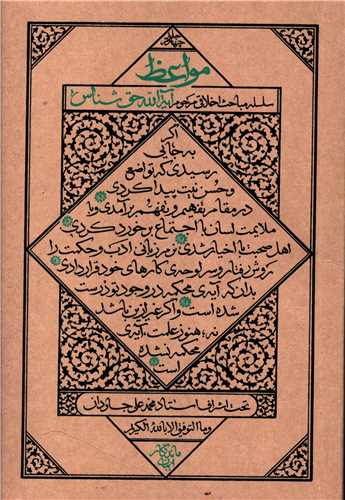 مواعظ
سلسله مباحث اخلاقی مرحوم آیة‌الله حق‌شناس
اگر
به جائی
رسیدی که تواضع
و حسن نیت پیدا کردی
در مقام تفهیم و تفهم برآمدی و با
ملایمت لسان با اجتماع برخورد کردی
اهل صحبت با اخیار شدی نرم زبانی ادب و حکمت را
روش رفتار و سرلوحه‌ی کارهای خود قرار دادی
بدان که آیه‌ی محکمه در وجود تو درست
شده است و اگر غیر از این باشد
نه، هنوز علمت، آیه‌ی
محکمه نشده
است
تحت اشراف استاد محمدعلی جاودان
وما التوفیق الا بالله الکریم